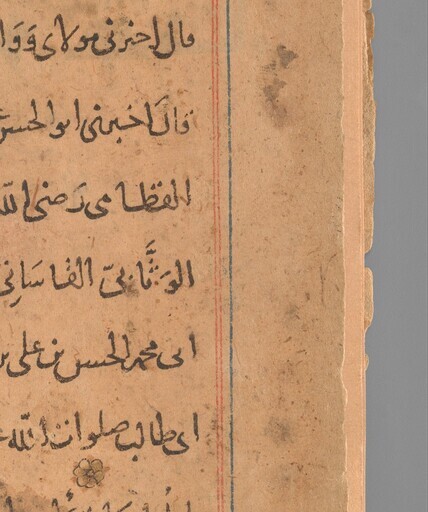 قال اخبرني مولاي وَوَا
قالَ اخبرني ابو الحسن
القظامى رَضى الله
الوَثَّابىّ القاسَانى
ابى محمد الحسن بن على بن
ابى طالب صلوات الله